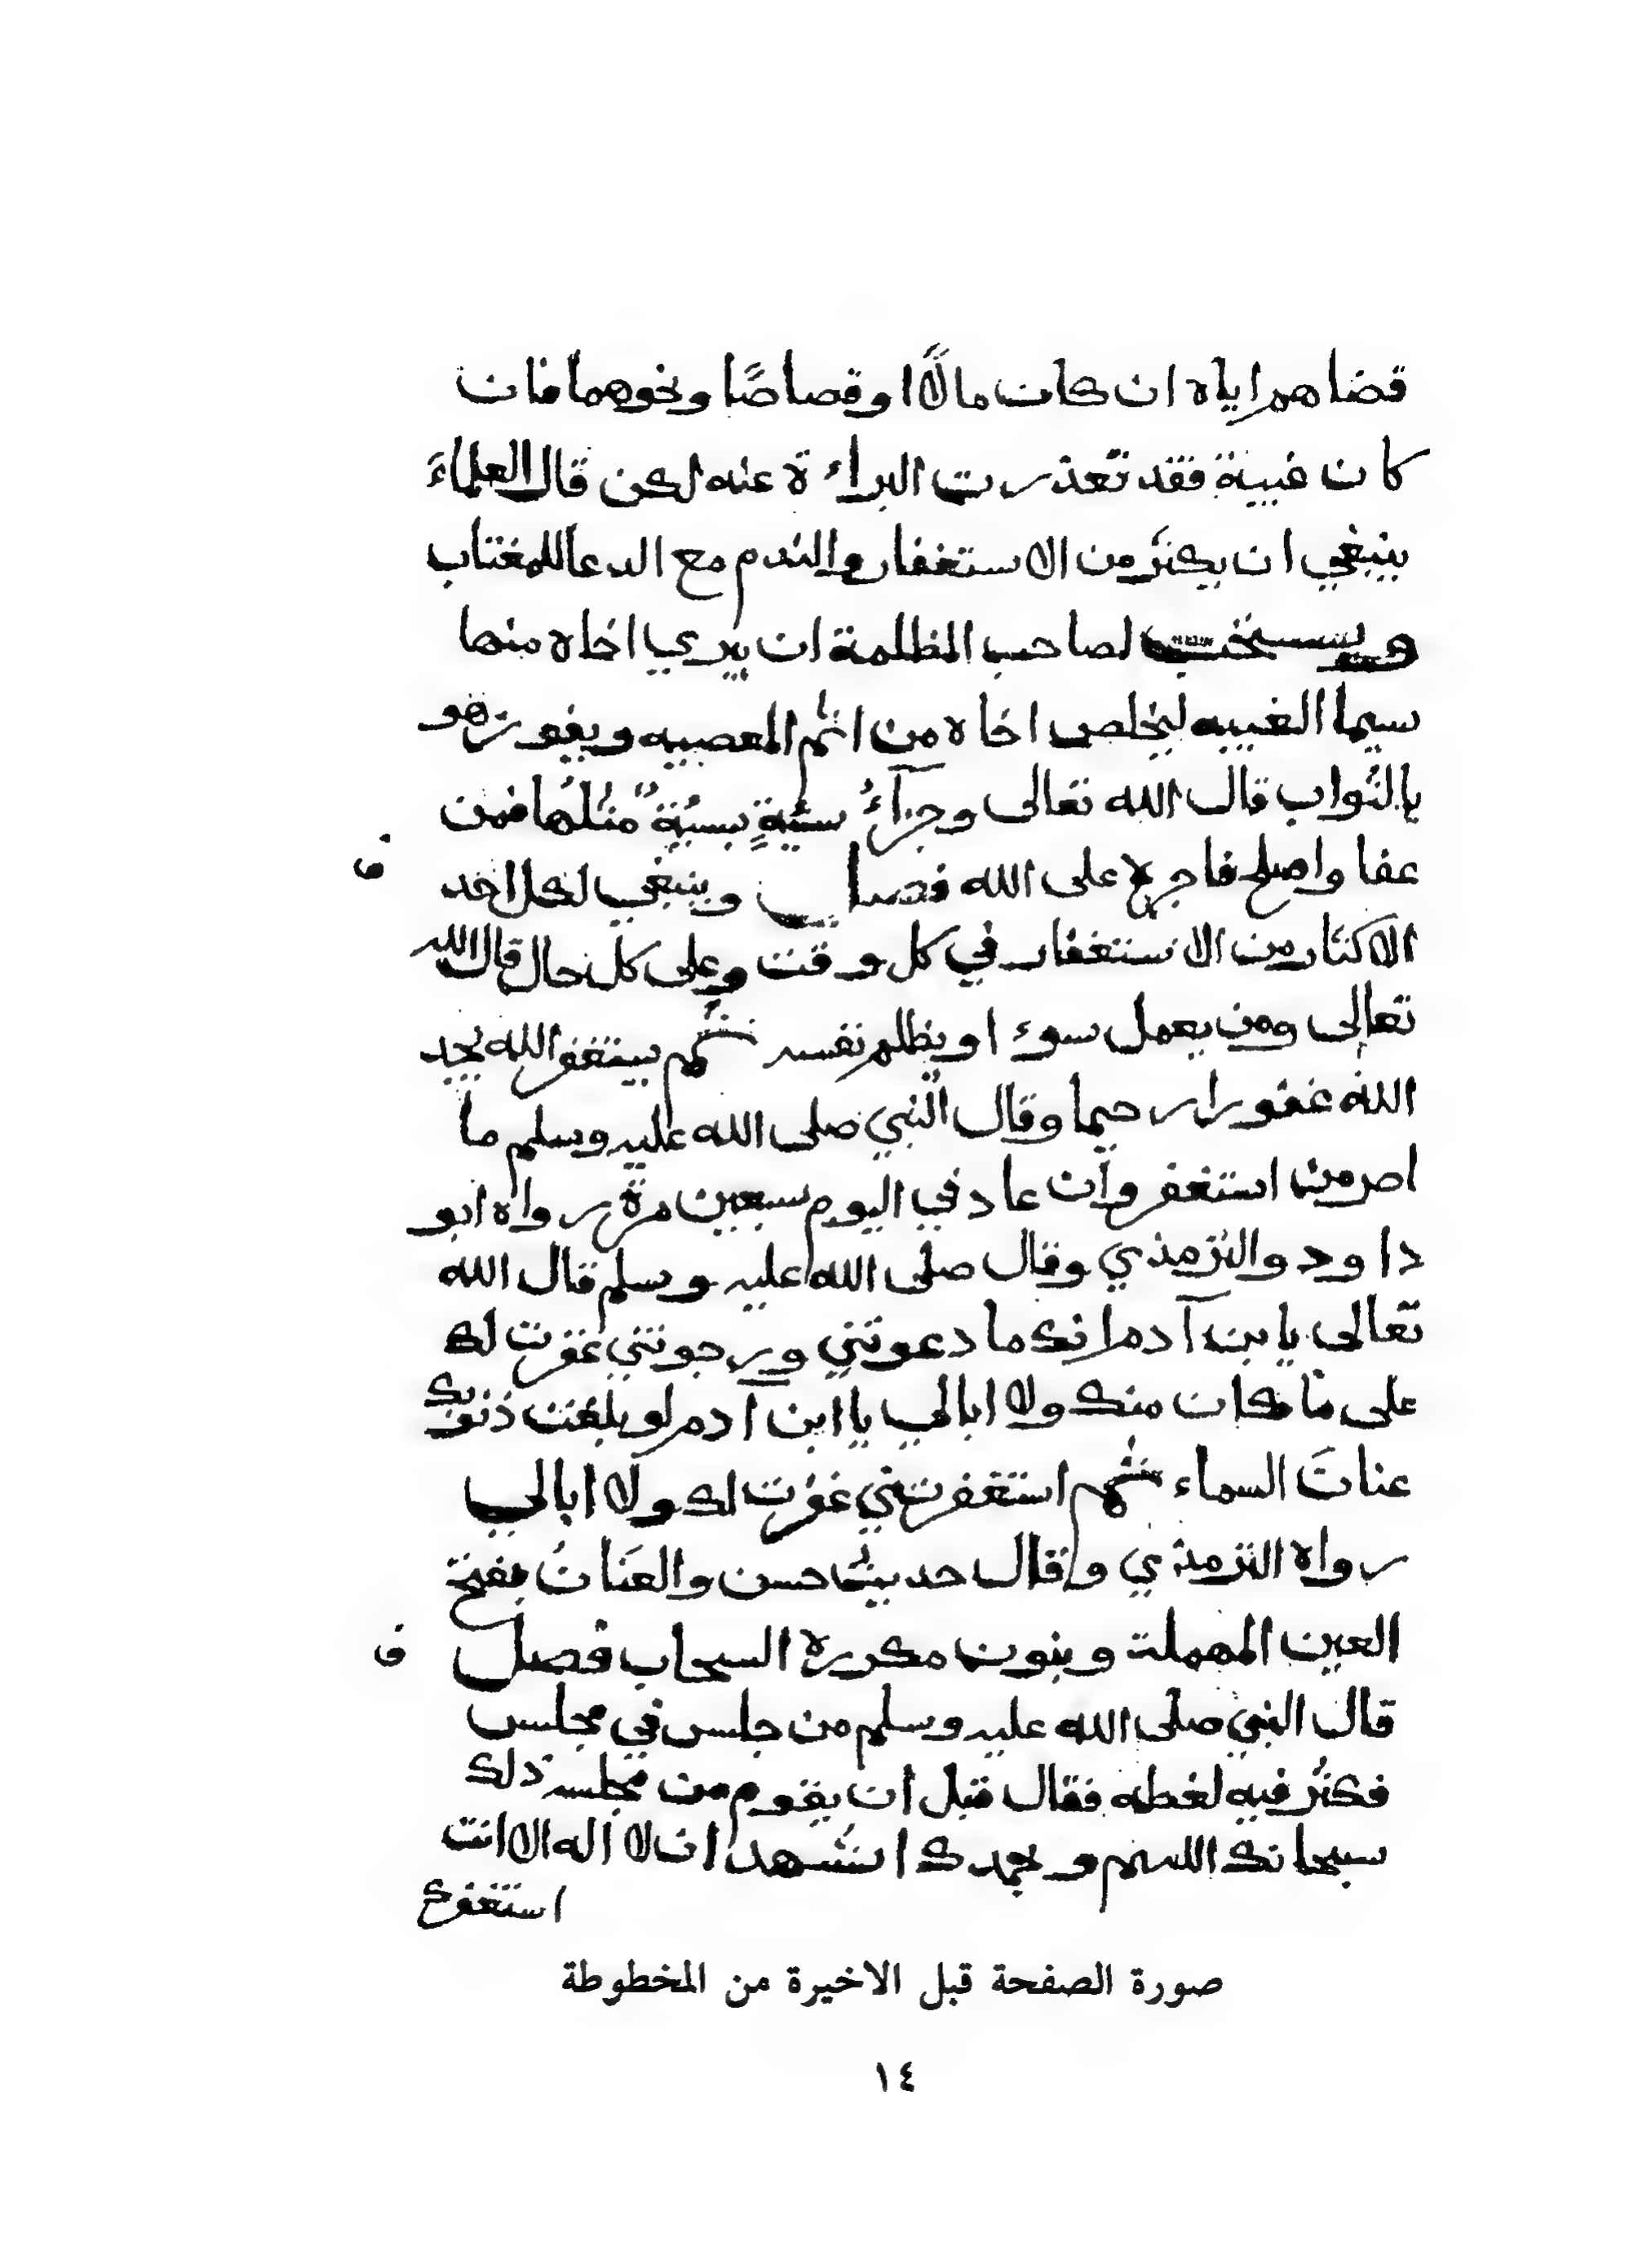 قضاهم اياه ان كان مالًا او قصاصًا ونحوهما فان
كان غيبة فقد تعذرت البراءة عنه لكن قال العلماء
ينبغي ان يكثر من الاستغفار والندم مع الدعا للمغتاب
ويستحب لصاحب المظلمة ان يبري اخاه منها
سيما الغيبه ليخلص اخاه من اثم المعصيه ويفوز هو
بالثواب قال الله تعالى وجزآءُ سيئةٍ سيئةٌ مثلُها فمن
عفا واصلح فاجره على الله فصل وينبغي لكل احد
ف
الاكثار من الاستغفار في كل وقت وعلى كل حال قال الله
تعالى ومن يعمل سوء او يظلم نفسه ثم يستغفر الله يجد
الله غفورا رحيما وقال النبي صلى الله عليه وسلم ما
اصر من استغفر وان عاد في اليوم سبعين مرة رواه ابو
داود والترمذي وقال صلى الله عليه وسلم قال الله
تعالى يا بن آدم انك ما دعوتني ورجوتني غفرت لك
على ما كان منك ولا ابالي يا ابن آدم لو بلغت ذنوبك
عنانَ السماء ثم استغفرتني غفرت لك ولا ابالي
رواه الترمذي وقال حديث حسن والعَنانُ بفتح
العين المهملة وبنون مكررة السحاب فصل
ف
قال النبي صلى الله عليه وسلم من جلس في مجلس
فكثر فيه لغطه فقال قبل ان يقوم من مجلسه ذلك
سبحانك اللهم وبحمدك اشهد ان لا اله الا انت
استغفرك
صورة الصفحة قبل الاخيرة من المخطوطة
١٤